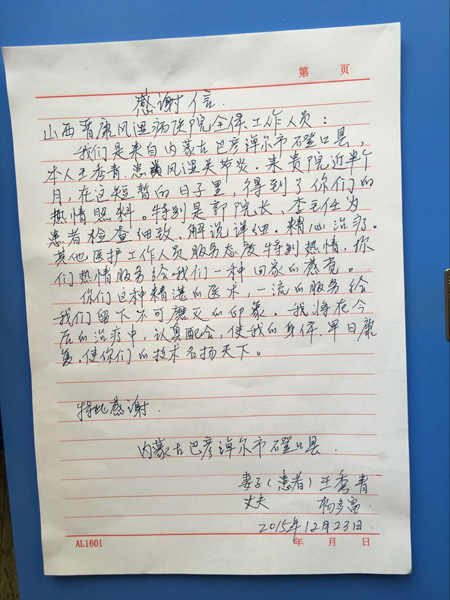 第 页
感谢信
山西晋康风湿病医院全体工作人员：
我们是来自内蒙古巴彦淖尔市磴口县，
本人王秀青患病风湿关节炎。来贵院近半个
月，在这短暂的日子里，得到了你们的
热情照料。特别是郭院长、李主任为
患者检查细致，解说详细。精心治疗。
其他医护工作人员服务态度特别热情，你
们热情服务给我们一种回家的感觉。
你们这种精湛的医术，一流的服务给
我们留下不可磨灭的印象。我将在今
后的治疗中，认真配合，使我的身体早日康
复，使你们的技术名扬天下。
特此感谢
内蒙古巴彦淖尔市磴口县
妻子（患者）王秀青
丈夫 杨
2015年12月23日
AL1601 年 月 日